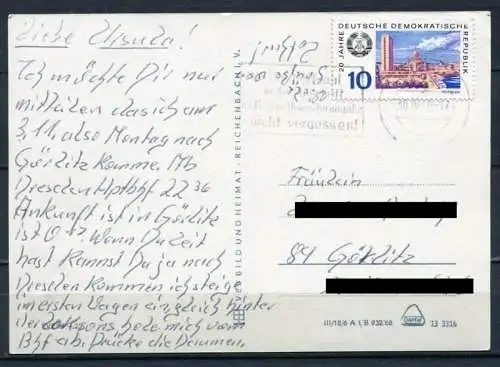 Liebe Ursula!
Ich möchte Dir nur
mitteilen das ich am
3.11. also Montag nach
Görlitz komme. Ab
Dresden Hptbhf 22 36
Ankunft ist in Görlitz
ist 0 17. Wenn Du Zeit
hast kannst Du ja nach
Dresden kommen ich steige
im ersten Wagen ein gleich hinter
der Lok sonst hole mich vom
Bhf ab. Drücke die Daumen.
BILD UND HEIMAT · REICHENBACH I. V.
20 JAHRE DEUTSCHE DEMOKRATISCHE REPUBLIK
10
nicht vergessen!
Fräulein
89 Görlitz
III/18/6 A 1/B 932/68
13 3316